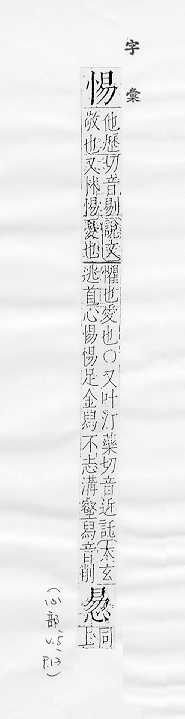 字彙
惕
他歷切音剔說文
敬也又怵惕憂也
懼也愛也○又叶汀藥切音近託太玄
逃首心惕惕足金舄不志溝壑舄音削
惖
同
上
(心部,
V.5,
P.13)